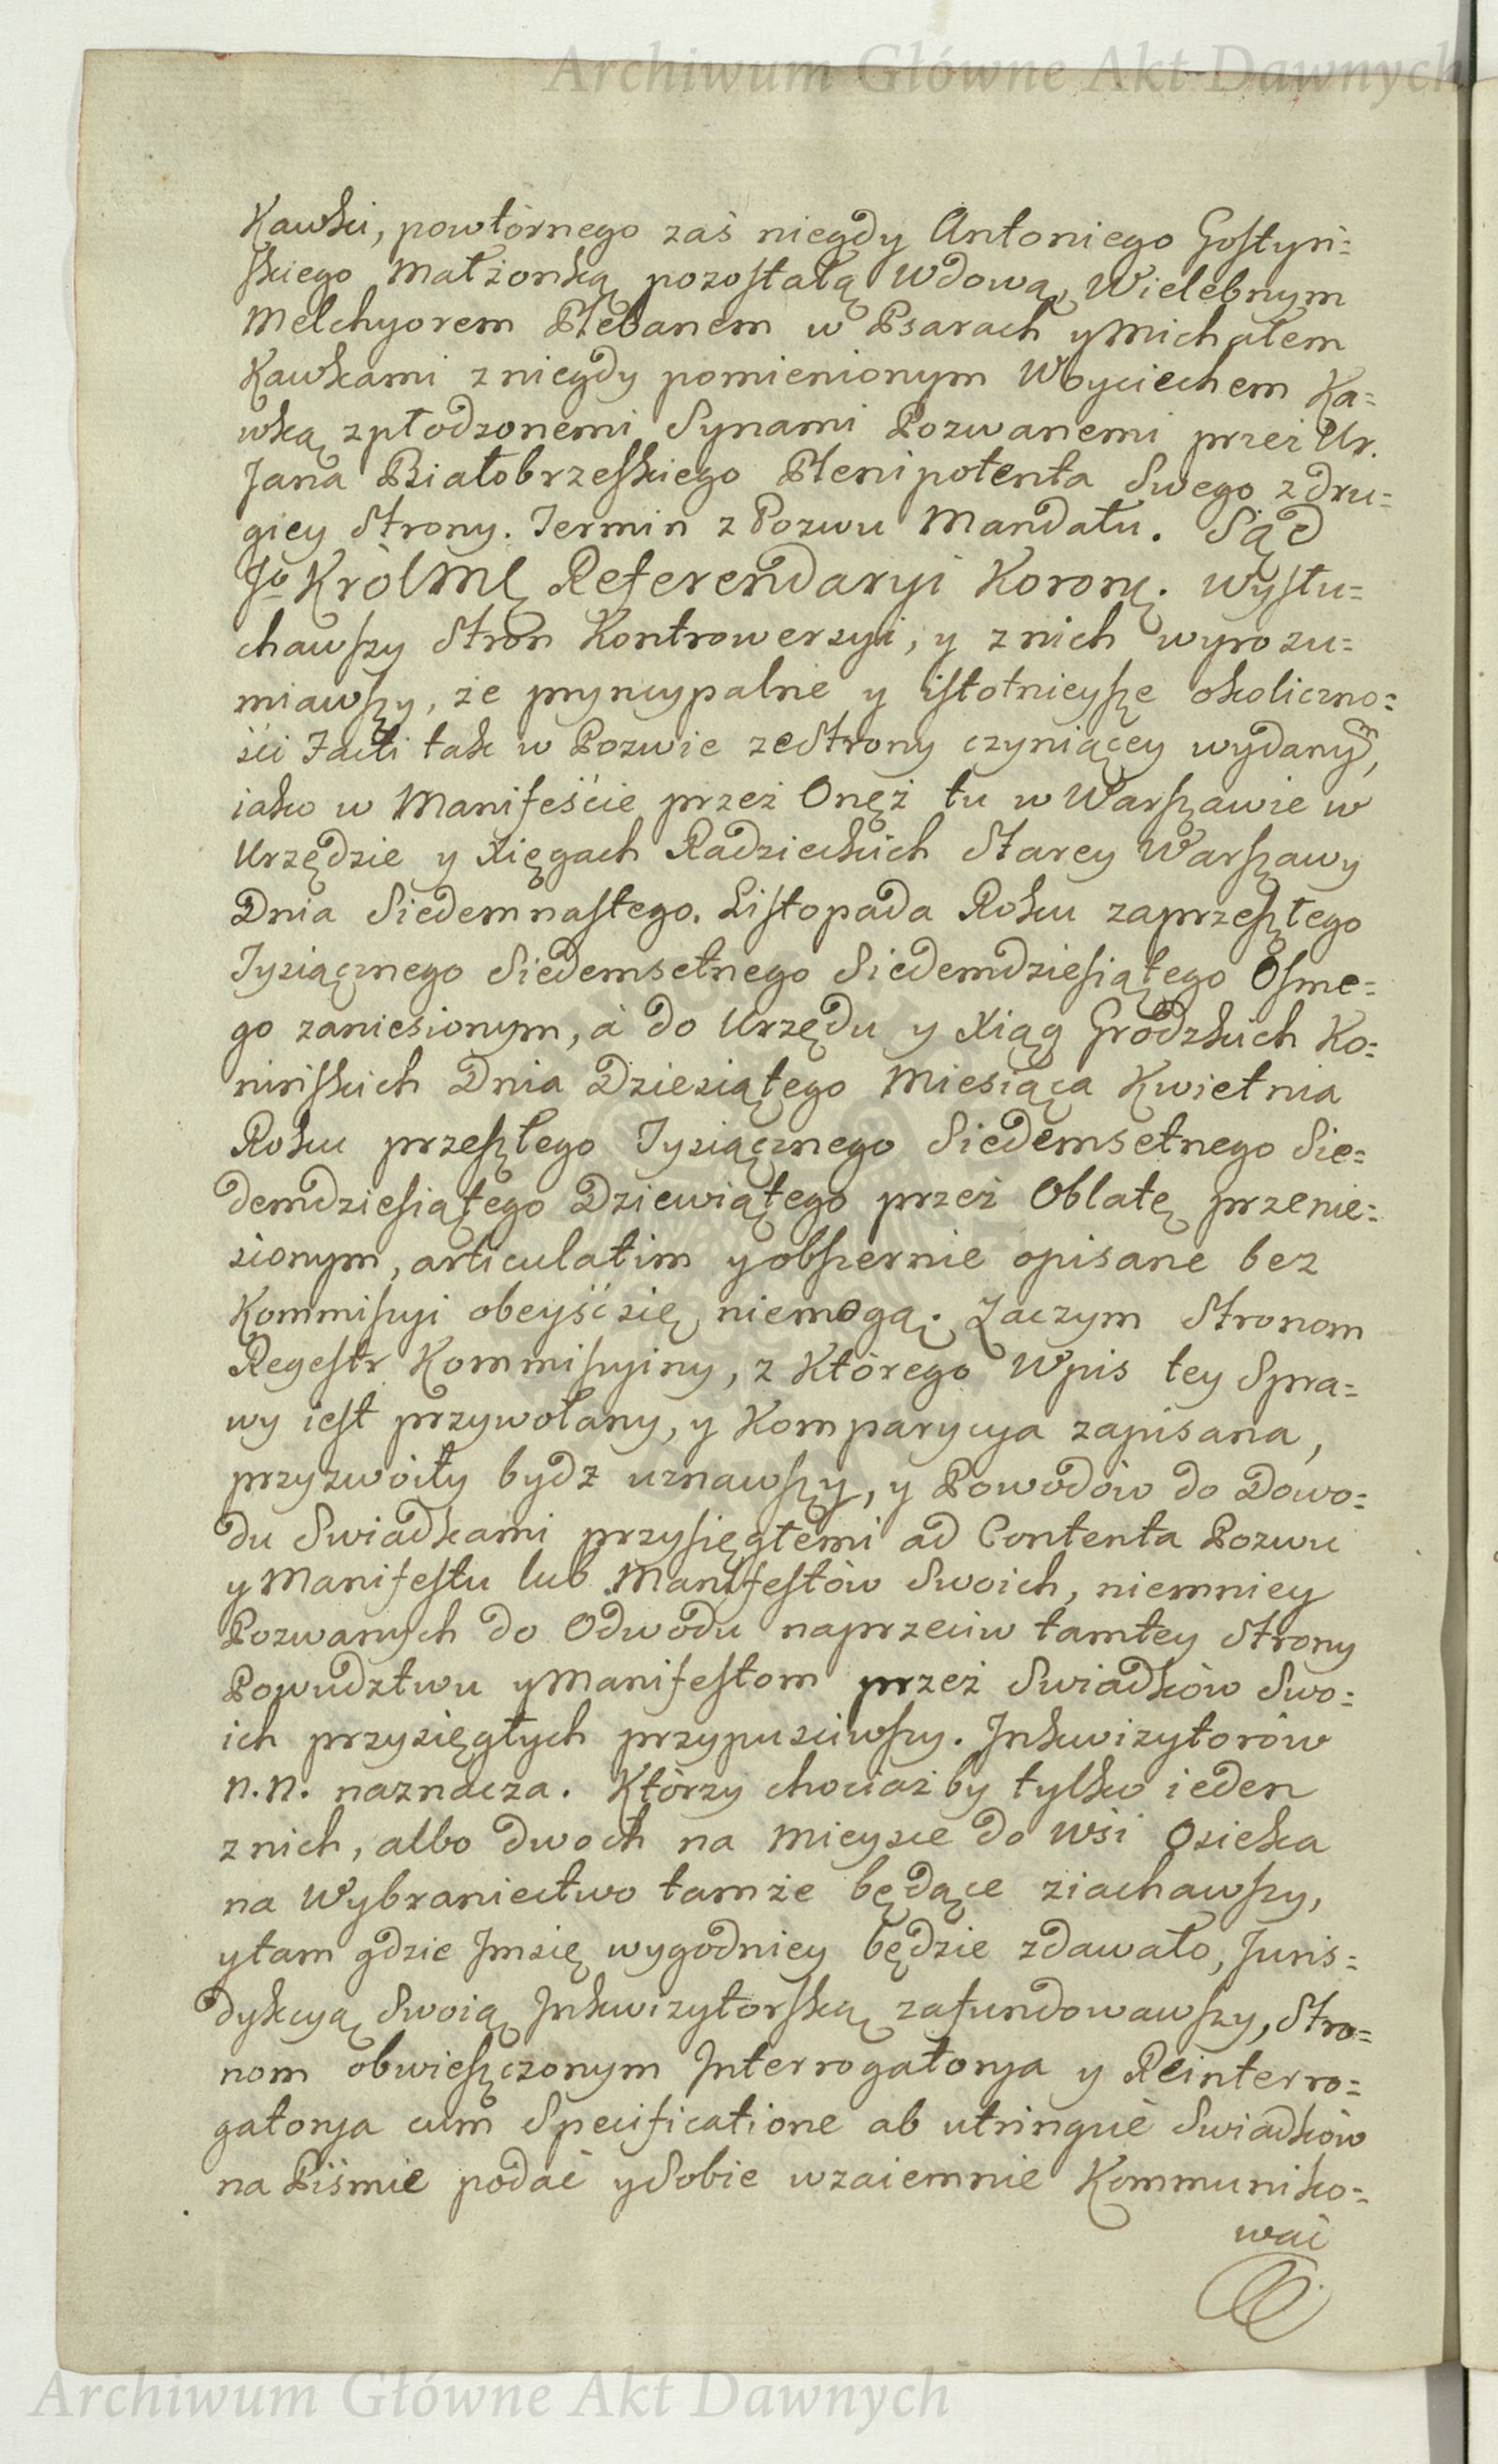 Archiwum Główne Akt Dawnych
Kawki, powtórnego zaś niegdy Antoniego Gostyń=
skiego Małżonką pozostałą Wdową, Wielebnym
Melchyorem Plebanem w Psarach y Michałem
Kawkami z niegdy pomienionym Woyciechem Ka=
wką zpłodzonemi Synami Pozwanemi przez Ur.
Jana Białobrzeskiego Plenipotenta Swego z dru=
giey Strony. Termin z Pozwu Mandatu. Sąd
Jo KrólMę Referendaryi Koronę. wysłu=
chawszy Stron Kontrowersyi, y z nich wyrozu=
miawszy, że pryncypalne y istotnieysze okoliczno=
ści Facti tak w Pozwie ze Strony czyniącey wydanym,
iako w Manifeście przez Onęż tu w Warszawie w
Urzędzie y Xięgach Radzieckich Starey Warszawy
Dnia Siedemnastego. Listopada Roku zaprzeszłego
Tysiącznego Siedemsetnego Siedemdziesiątego Osme=
go zaniesionym, á do Urzędu y Xiąg Grodzkich Ko=
nińskich Dnia Dziesiątego Miesiąca Kwietnia
Roku przeszłego Tysiącznego Siedemsetnego Sie=
demdziesiątego Dziewiątego przez Oblatę przenie=
sionym, articulatim y obszernie opisane bez
Kommissyi obeyść się niemogą. Zaczym Stronom
Regestr Kommissyiny, z którego Wpis tey Spra=
wy iest przywołany, y Komparycya zapisana,
przyzwoity bydź uznawszy, y Powodów do Dowo=
du Swiadkami przysięgłemi ad Contenta Pozwu
y Manifestu lub Manifestów Swoich, niemniey
Pozwanych do Odwodu naprzeciw tamtey Strony
Powudztwu y Manifestom przez Swiadków Swo=
ich przysięgłych przypusciwszy. Inkwizytorów
N.N. naznacza. Którzy chociażby tylko ieden
z nich, albo dwoch na mieysce do Wsi Osieka
na Wybraniectwo tamże będące ziachawszy,
y tam gdzie Im się wygodniey będzie zdawało, Juris=
dykcyą Swoią Inkwizytorską zafundowawszy, Stro=
nom obwieszczonym Interrogatorya y Reinterro=
gatorya cum Specificatione ab utrinque Swiadków
na Piśmie podać y Sobie wzaiemnie Kommuniko=
wać
Archiwum Główne Akt Dawnych